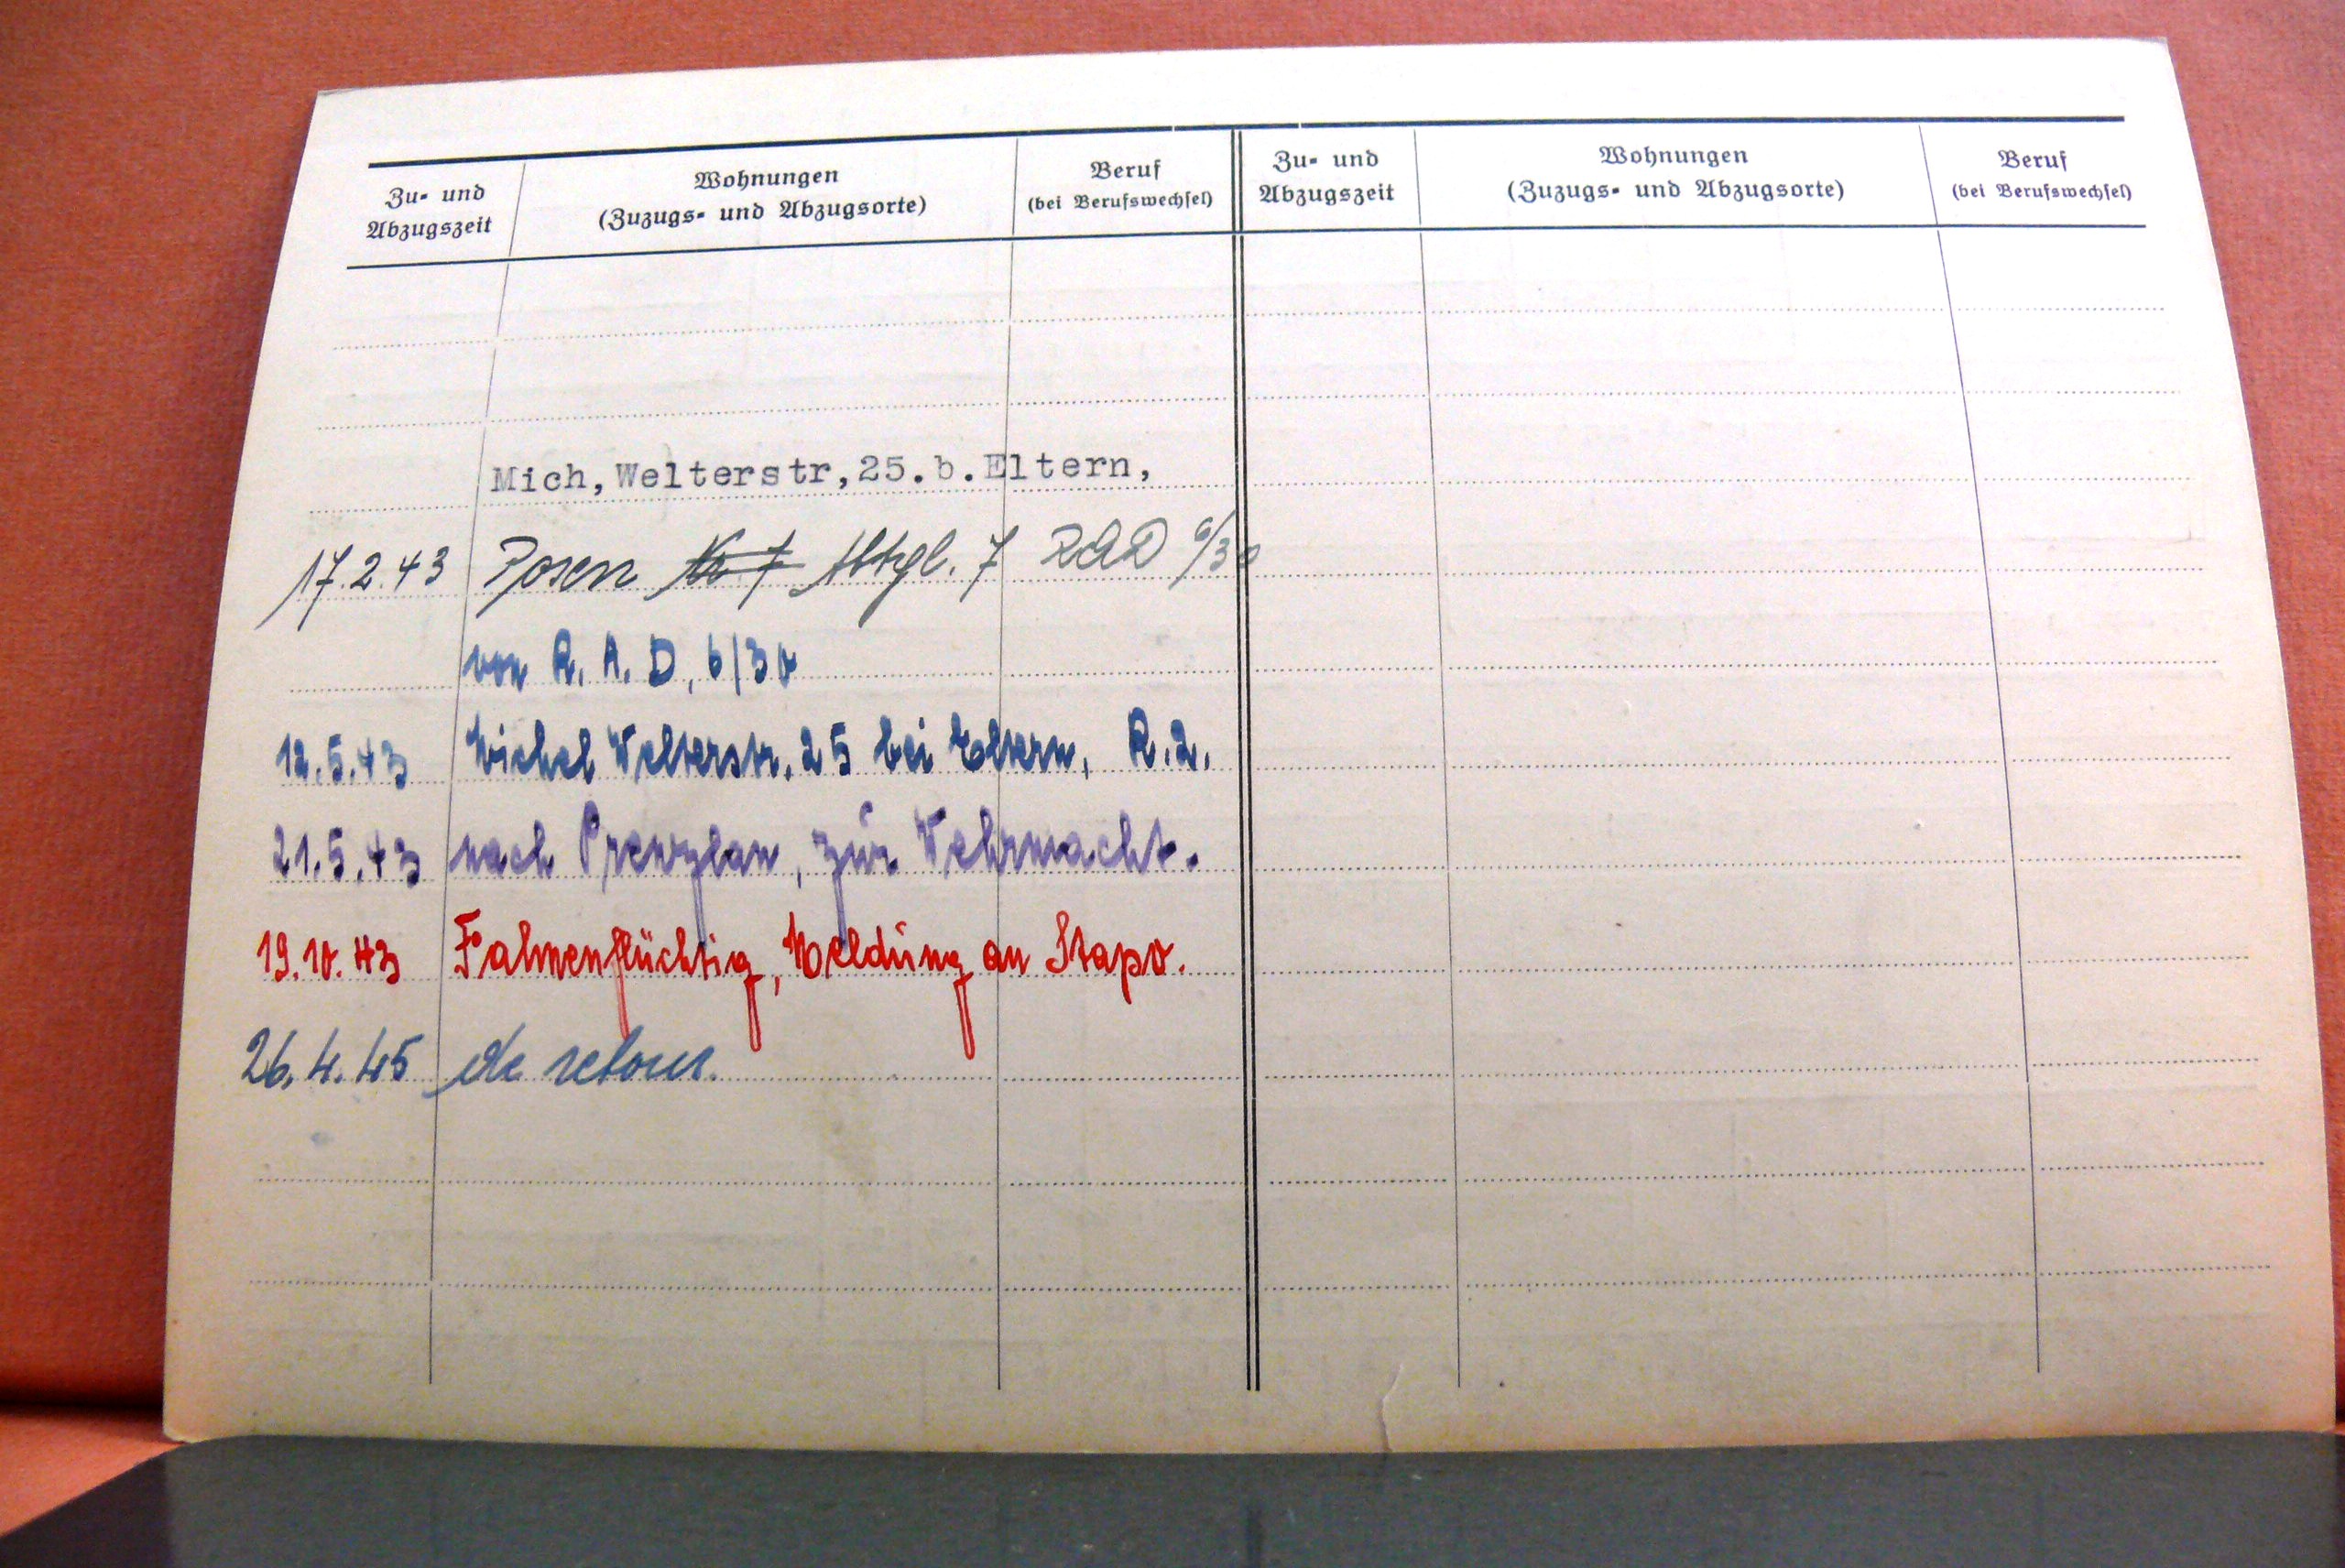 Zu- und Abzugszeit
Wohnungen
(Zuzugs- und Abzugsorte)
Beruf
(bei Berufswechsel)
Zu- und Abzugszeit
Wohnungen
(Zuzugs- und Abzugsorte)
Beruf
(bei Berufswechsel)
Mich,Welterstr,25.b.Eltern,
17.2.43 Posen Abtgl. 7 RAD 6/30
von R. A. D, 6/30
12.5.43 Michel Welterstr. 25 bei Eltern, R.2.
21.5.43 nach Prenzlau, zur Wehrmacht.
19.10.43 Fahnenflüchtig, Meldung an Stapo.
26.4.45 de retour.